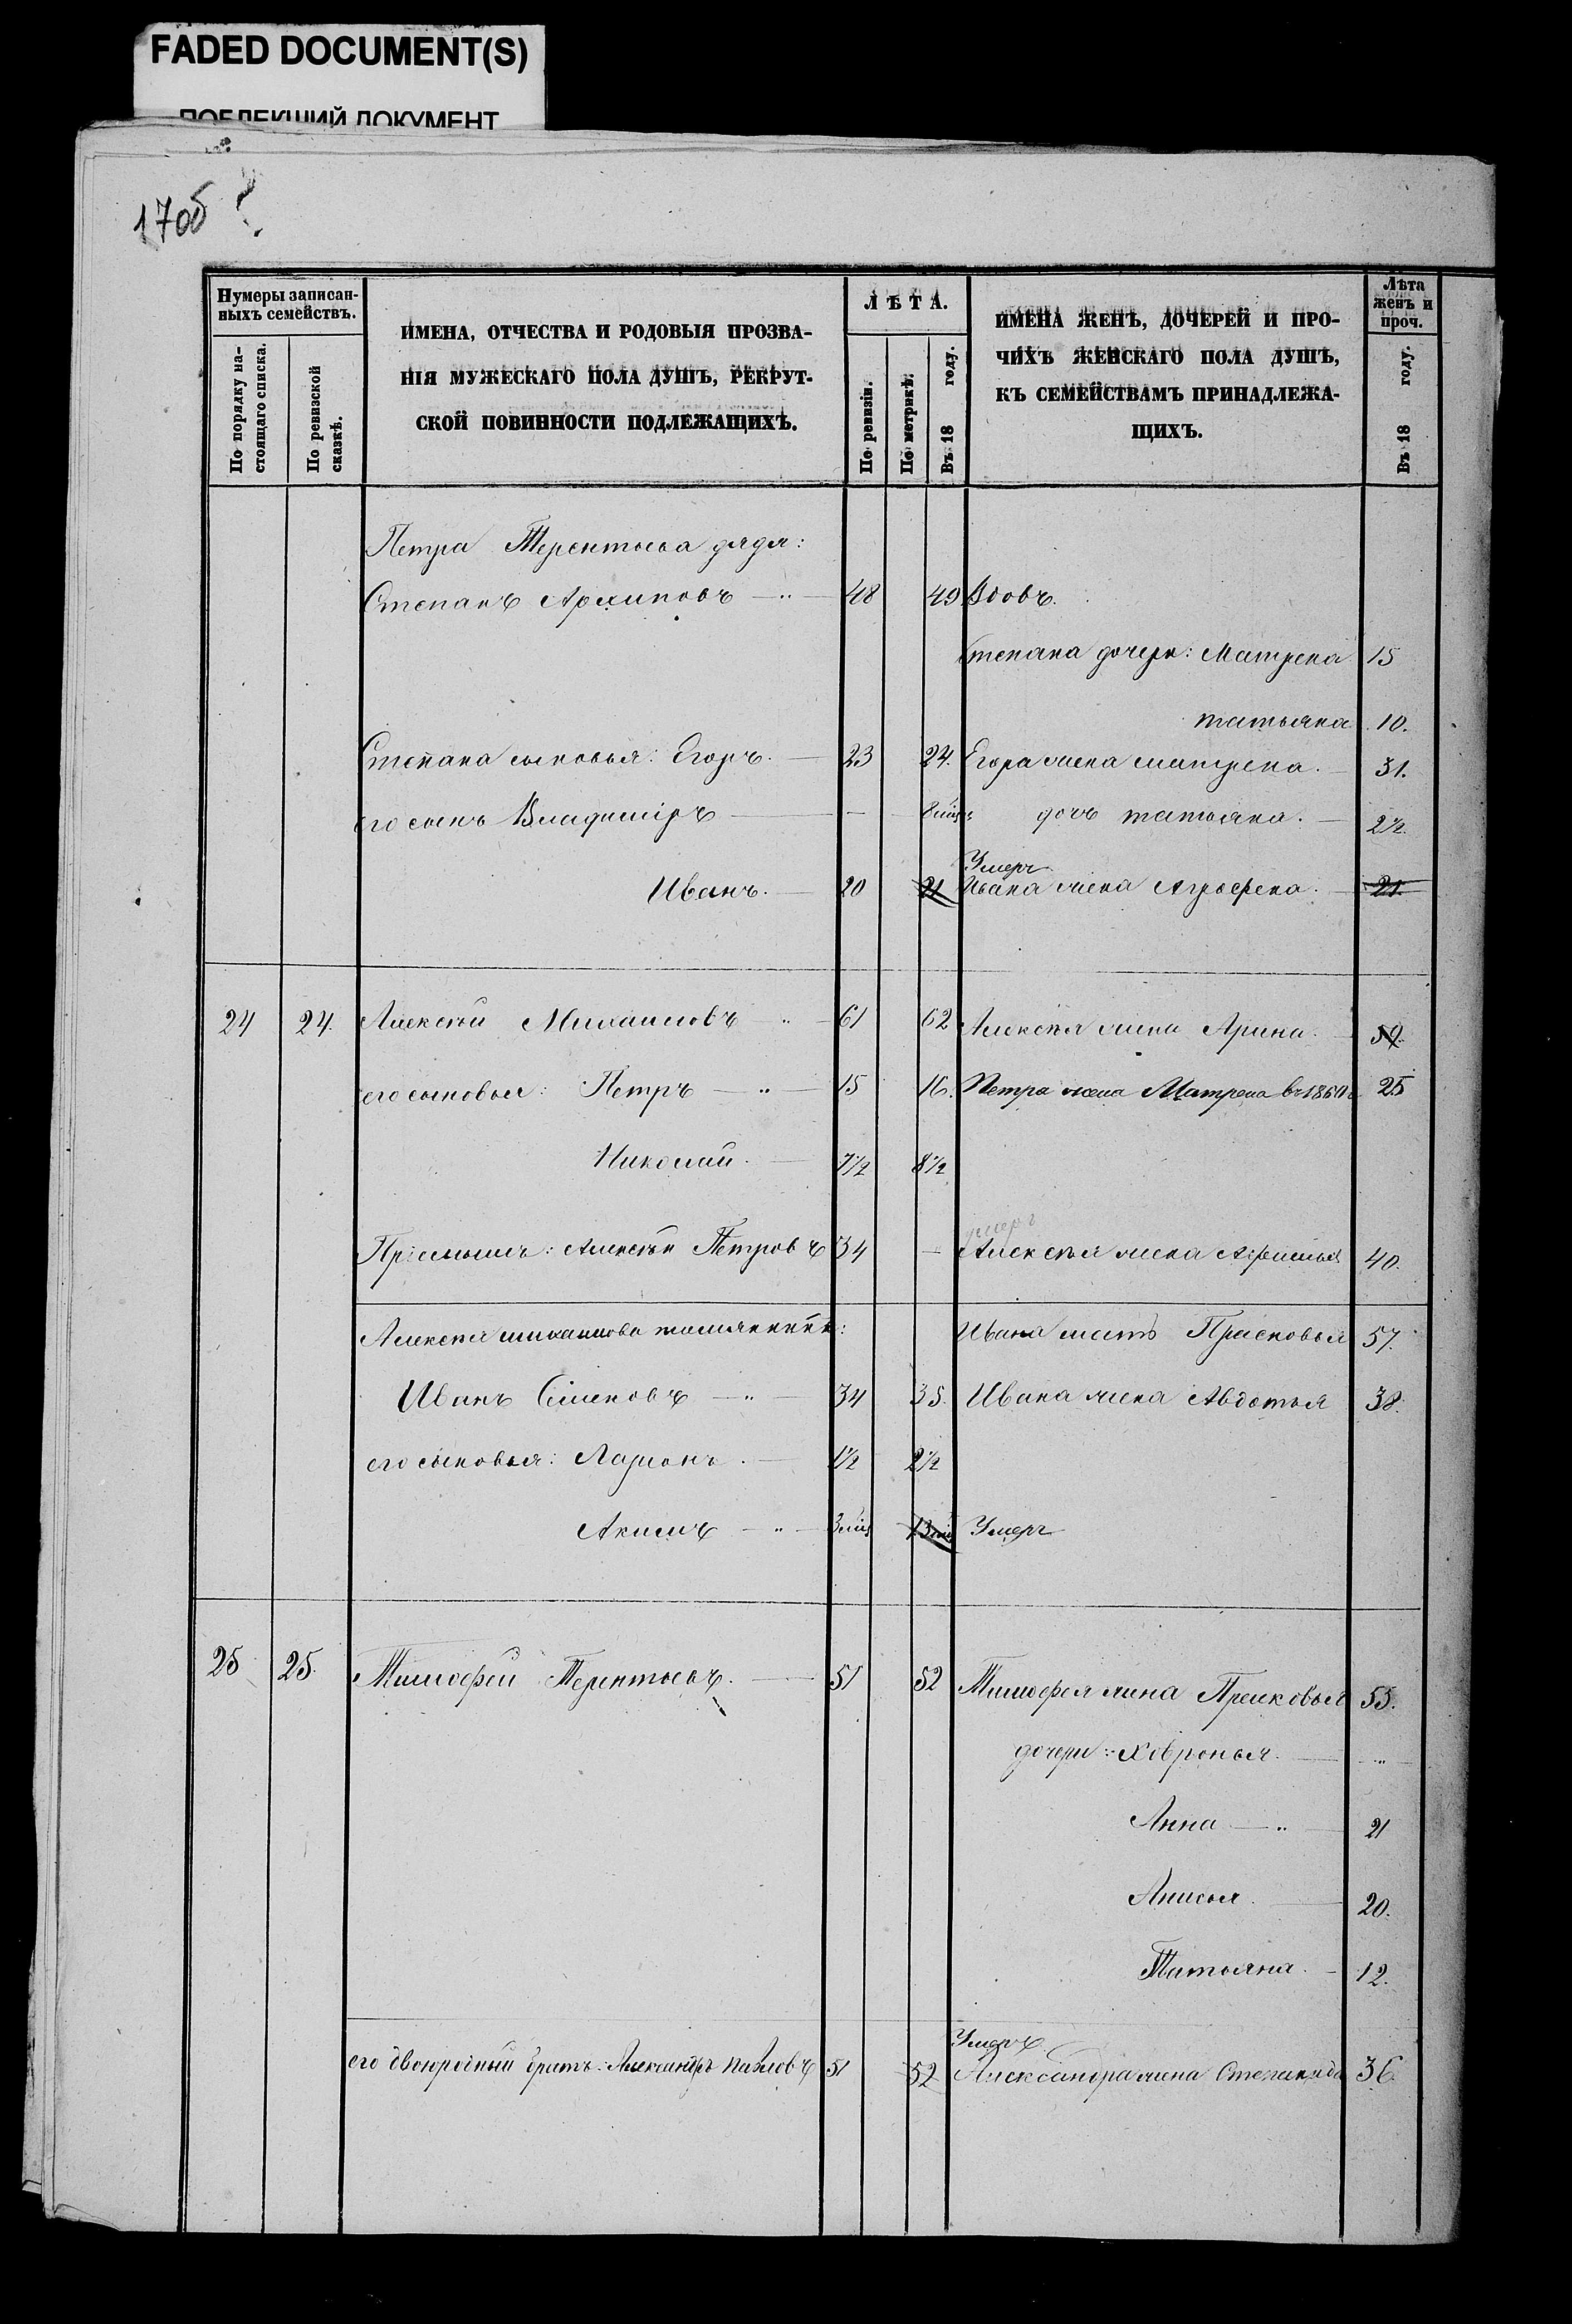 FADED DOCUMENT(S)
ПОБЛЕКШИЙ ДОКУМЕНТ
170б ?
Нумеры записан-
ныхъ семействъ.
По порядку на-
стоящаго списка.
По ревизской
сказкѣ.
ИМЕНА, ОТЧЕСТВА И РОДОВЫЯ ПРОЗВА-
НІЯ МУЖЕСКАГО ПОЛА ДУШЪ, РЕКРУТ-
СКОЙ ПОВИННОСТИ ПОДЛЕЖАЩИХЪ.
ЛѢТА.
По ревизіи.
По метрикѣ.
Въ 18 году.
ИМЕНА ЖЕНЪ, ДОЧЕРЕЙ И ПРО-
ЧИХЪ ЖЕНСКАГО ПОЛА ДУШЪ,
КЪ СЕМЕЙСТВАМЪ ПРИНАДЛЕЖА-
ЩИХЪ.
Лѣта
женъ и
проч.
Въ 18 году.
Петра Терентьева дядя:
Степанъ Архиповъ — " — 48 49 Вдовъ.
Степана дочери: Матрена 15
татьяна 10.
Степана сыновья: Егоръ. — 23 24. Егора жена матрена. — 31.
его сынъ Владиміръ — — 8 мѣс " дочь татьяна. — 2½.
Умеръ
Иванъ. — 20 21 Ивана жена Агрефена. — 21.
24 24. Алексѣй Михаиловъ " — 61 62 Алексѣя жена Арина. 59.
его сыновья: Петръ — " — 15 16. Петра жена Матрена въ 1860 г 25
Николай. — 7½ 8½
умеръ
Пріемышъ: Алексѣй Петровъ 34 — Алексѣя жена 40.
Алексѣя михаилова племянникъ: Ивана мать Прасковья 57.
Иванъ Семеновъ — " — 34 35. Ивана жена Авдотья 38.
его сыновья: Ларіонъ. — 1½ 2½
Акимъ — " — 3 мѣс 13 мѣс Умеръ
25 25. Тимофей Терентьевъ. — 51 52 Тимофея жена Прасковья 55.
дочери: Ховронья. — "
Анна — " — 21
Анисья. — 20.
Татьяна. — 12.
Умеръ
его двоюродный братъ: Александръ павловъ 51 52 Александра жена Степанида 36